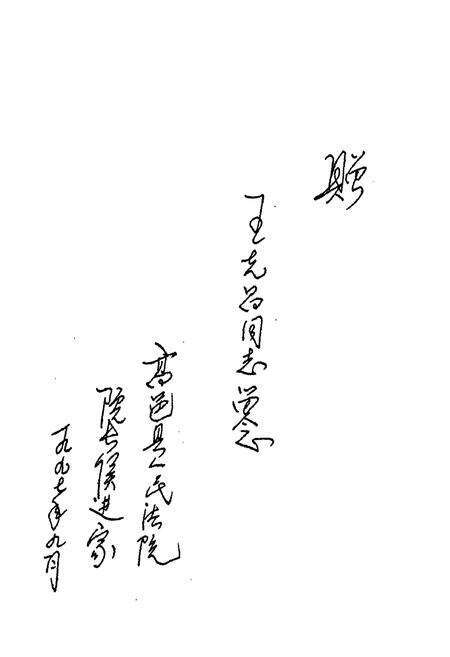 赠
王先昌同志留念
高邑县人民法院
院长侯进家
一九九七年九月